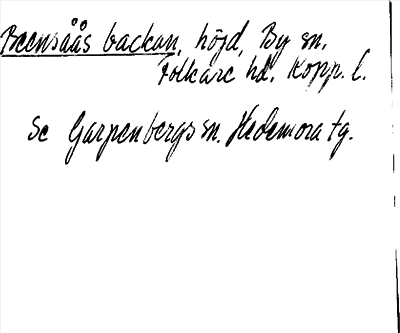 Beensåås backan, höjd, By sn.
Folkare hd. Kopp. l.
Se Garpenbergs sn. Hedemora tg.